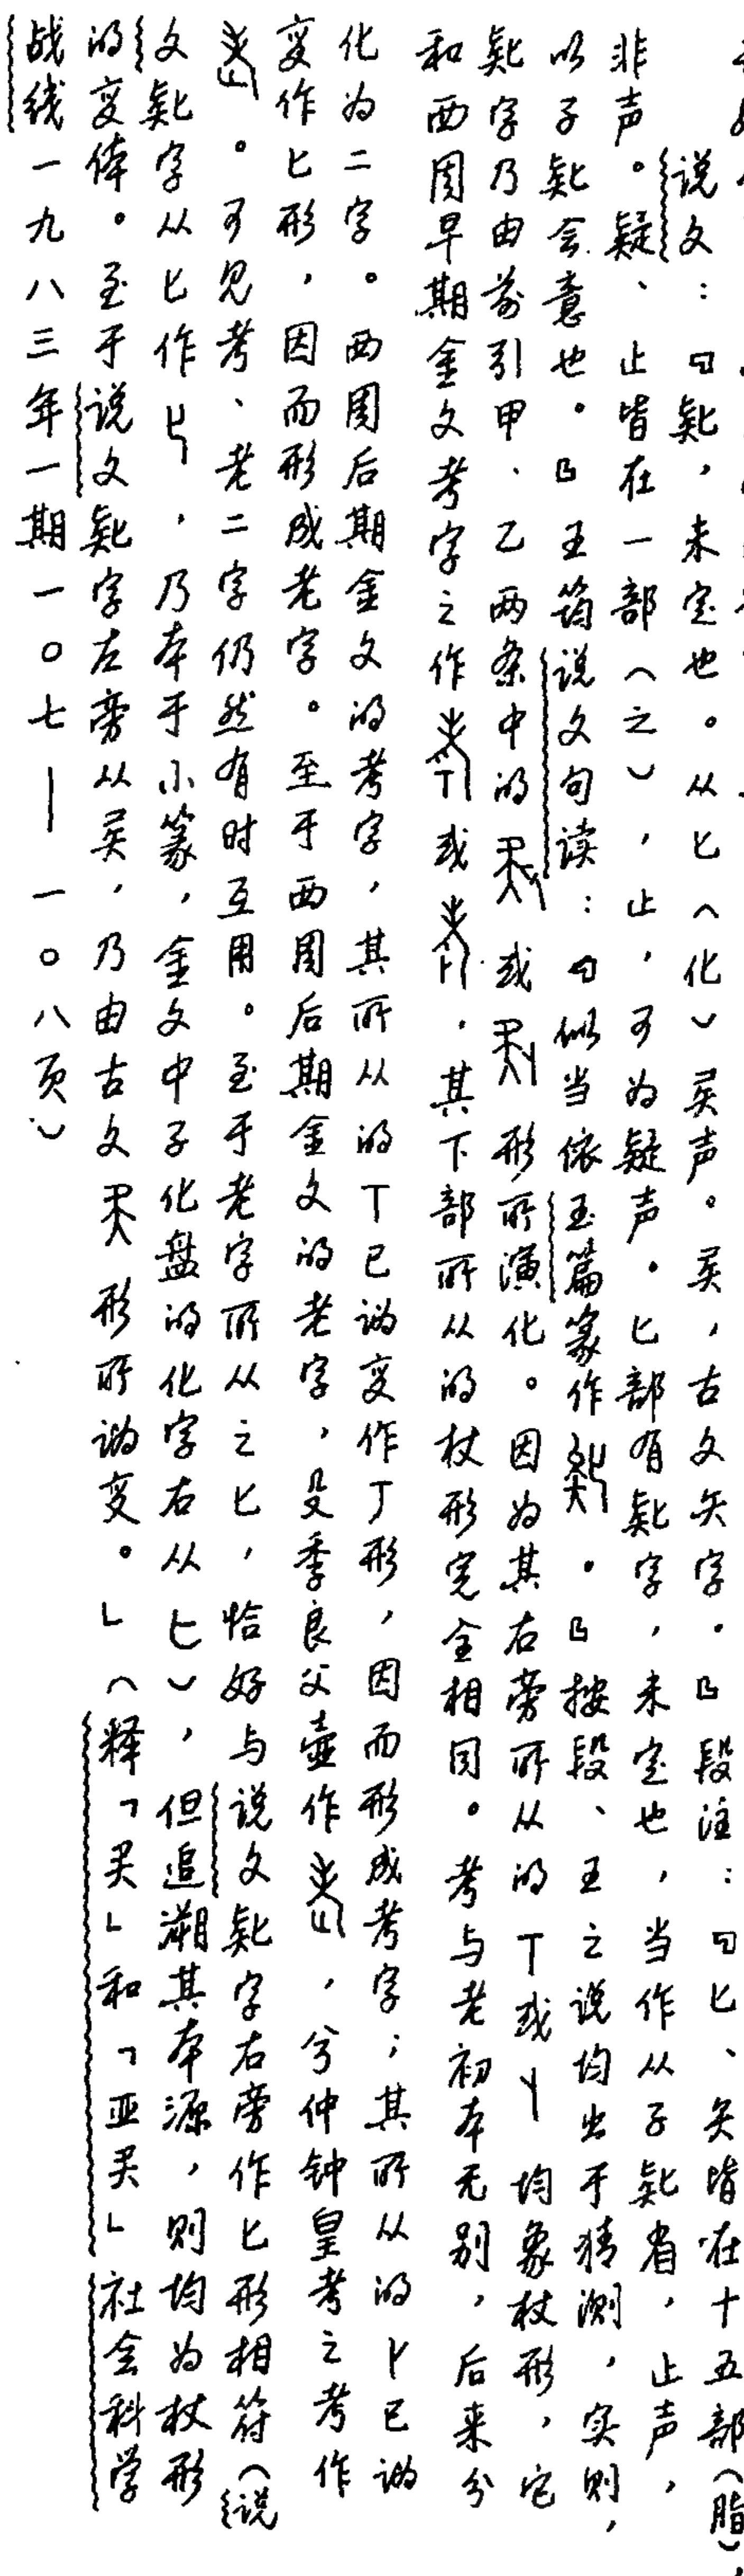 说文:「𠤗,未定也。从匕(化)𠤕声。𠤕,古文矢字。」段注:「匕、矢皆在十五部(脂),
非声。疑、止皆在一部(之),止,可为疑声。匕部有𠤗字,未定也,当作从子𠤗省,止声,
以子𠤗会意也。」王筠说文句读:「似当依玉篇篆作。」按段、王之说均出于猜测,实则,
𠤗字乃由前引甲、乙两条中的或形所演化。因为其右旁所从的丅或丫均象杖形,它
和西周早期金文考字之作或,其下部所从的杖形完全相同。考与老初本无别,后来分
化为二字。西周后期金文的考字,其所从的丅已讹变作丁形,因而形成考字;其所从的卜已讹
变作匕形,因而形成老字。至于西周后期金文的老字,殳季良父壶作,兮仲钟皇考之考作
。可见考、老二字仍然有时互用。至于老字所从之匕,恰好与说文𠤗字右旁作匕形相符(说
文𠤗字从匕作,乃本于小篆,金文中子化盘的化字右从匕),但追溯其本源,则均为杖形
的变体。至于说文𠤗字左旁从𠤕,乃由古文形所讹变。」(释「」和「亚」社会科学
战线一九八三年一期一〇七——一〇八页)